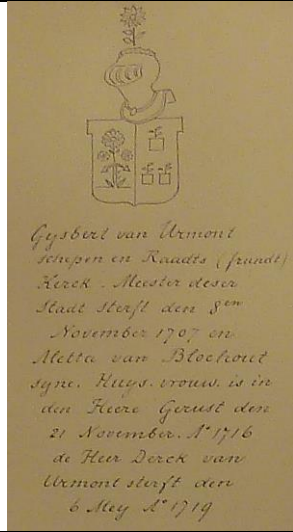 Gysbert van Urmont
schepen en Raadts (frundt)
Kerck. Meester deser
Stadt sterft den 8en
November 1707 en
Metta van Blochout
syne. Huys. vrouw. is in
den Heere Gerust den
21 November. Ao 1716
de Heer Derck van
Urmont sterft den
6 Mey Ao 1719